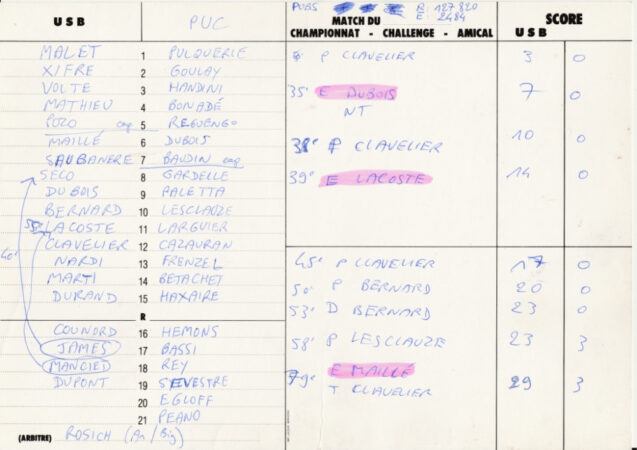 U S B PUC
MALET 1 PULQUERIE
XIFRE 2 GOULAY
VOLTE 3 MANDINI
MATHIEU 4 BONADÉ
POZO cap 5 REGUENGO
MAILLÉ 6 DUBOIS
SAUBANERE 7 BAUDIN cap
SECO 8 GARDELLE
DUBOIS 9 PALETTA
BERNARD 10 LESCLAUZE
LACOSTE 11 LARGUIER
CLAVELIER 12 CAZAURAN
NARDI 13 FRENZEL
MARTI 14 BETACHET
DURAND 15 HAXAIRE
R
COUNORD 16 HEMONS
JAMES 17 BASSI
MANCIED 18 REY
DUPONT 19 SEVESTRE
20 EGLOFF
21 PEANO
(ARBITRE) ROSICH
40'
PUBS R: 127 820
E: 2484
MATCH DU
CHAMPIONNAT - CHALLENGE - AMICAL
SCORE
U S B
P CLAVELIER 3 0
35' E DUBOIS 7 0
NT
38' P CLAVELIER 10 0
39' E LACOSTE 14 0
45' P CLAVELIER 17 0
50' P BERNARD 20 0
53' D BERNARD 23 0
58' P LESCLAUZE 23 3
79' E MAILLÉ
T CLAVELIER 29 3